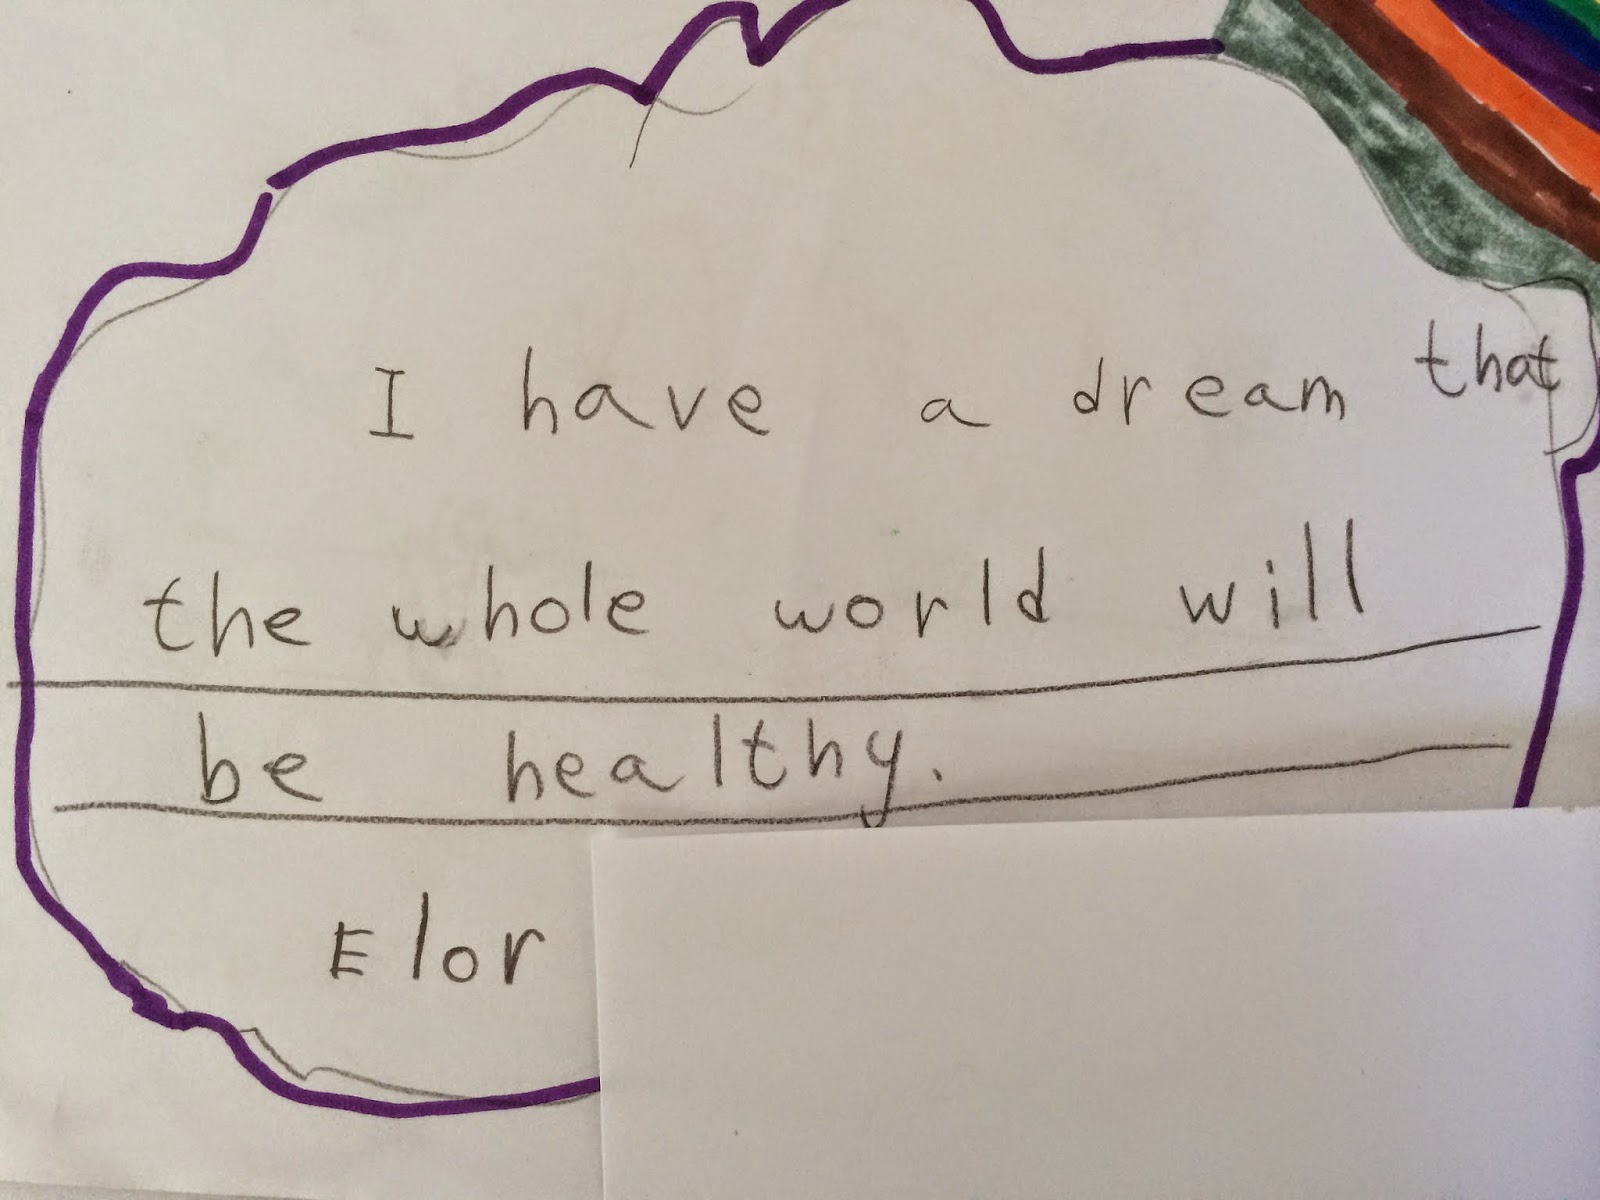 I have a dream that
the whole world will
be healthy.
Elor